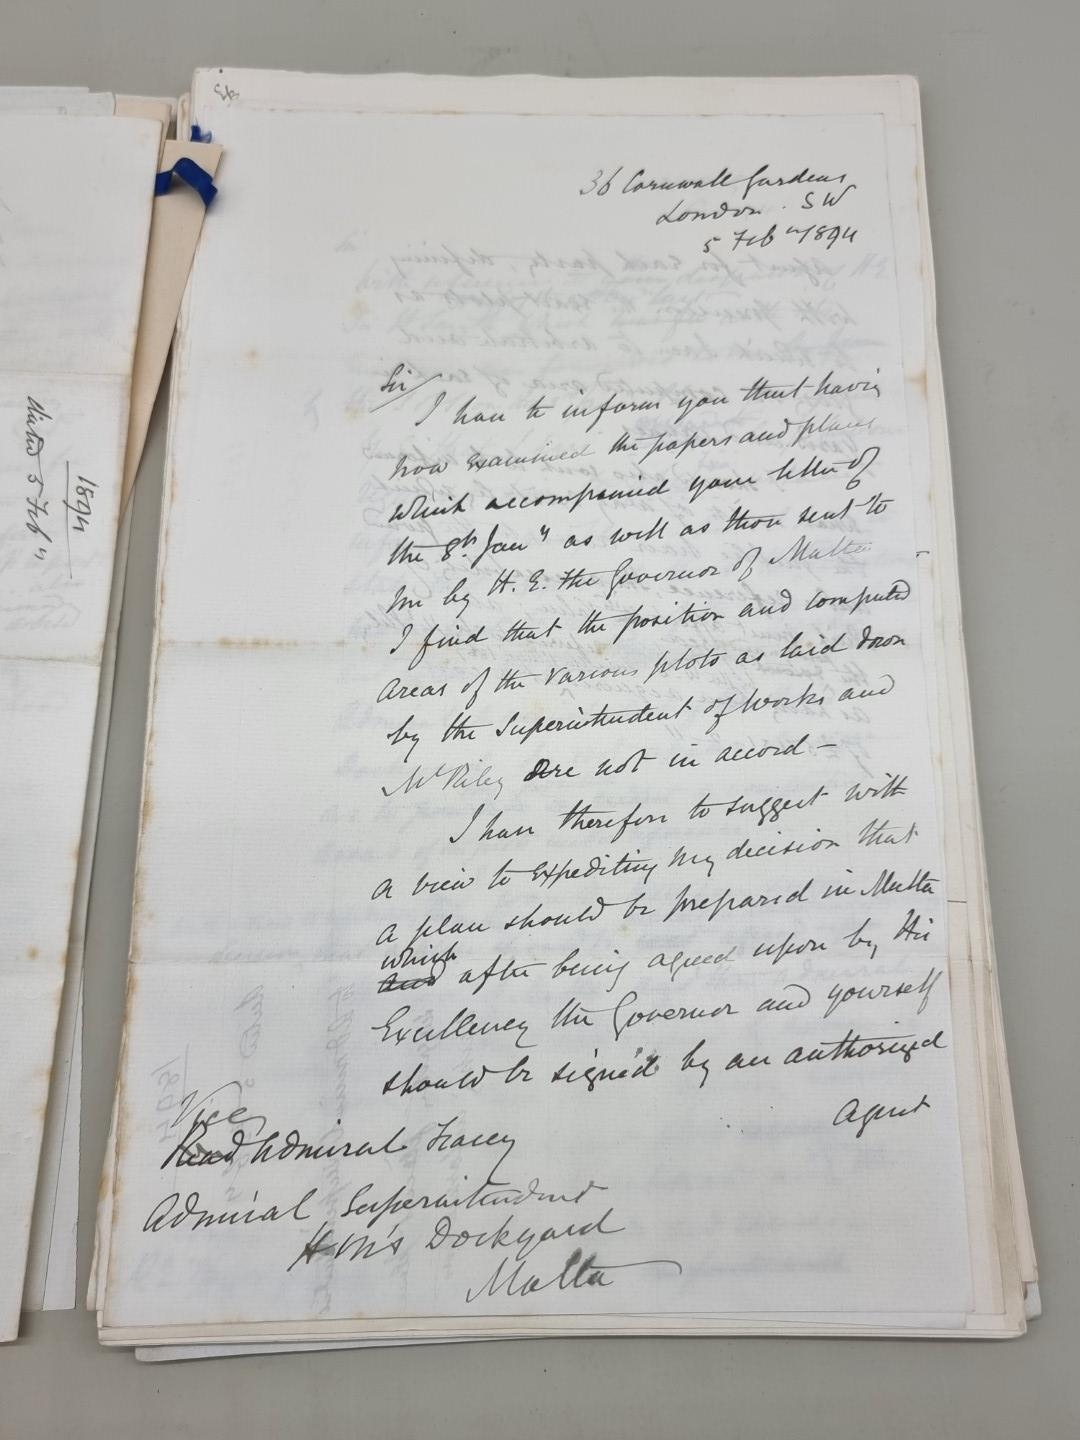 36 Cornwall Gardens
London. SW
5 Feby 1894
Sir/
I have to inform you that having
now examined the papers and plans
which accompanied your letter of
the 8th Jany as well as those sent to
me by H. E. the Governor of Malta
I find that the position and computed
areas of the various plots as laid down
by the Superintendent of Works and
Mr Riley are not in accord –
I have therefore to suggest with
a view to expediting my decision that
a plan should be prepared in Malta
which
and after being agreed upon by His
Excellency the Governor and yourself
should be signed by an authorized
Agent
Vice
Read Admiral Tracey
Admiral Superintendent
H M's Dockyard
Malta
1894
dated 5 Feby